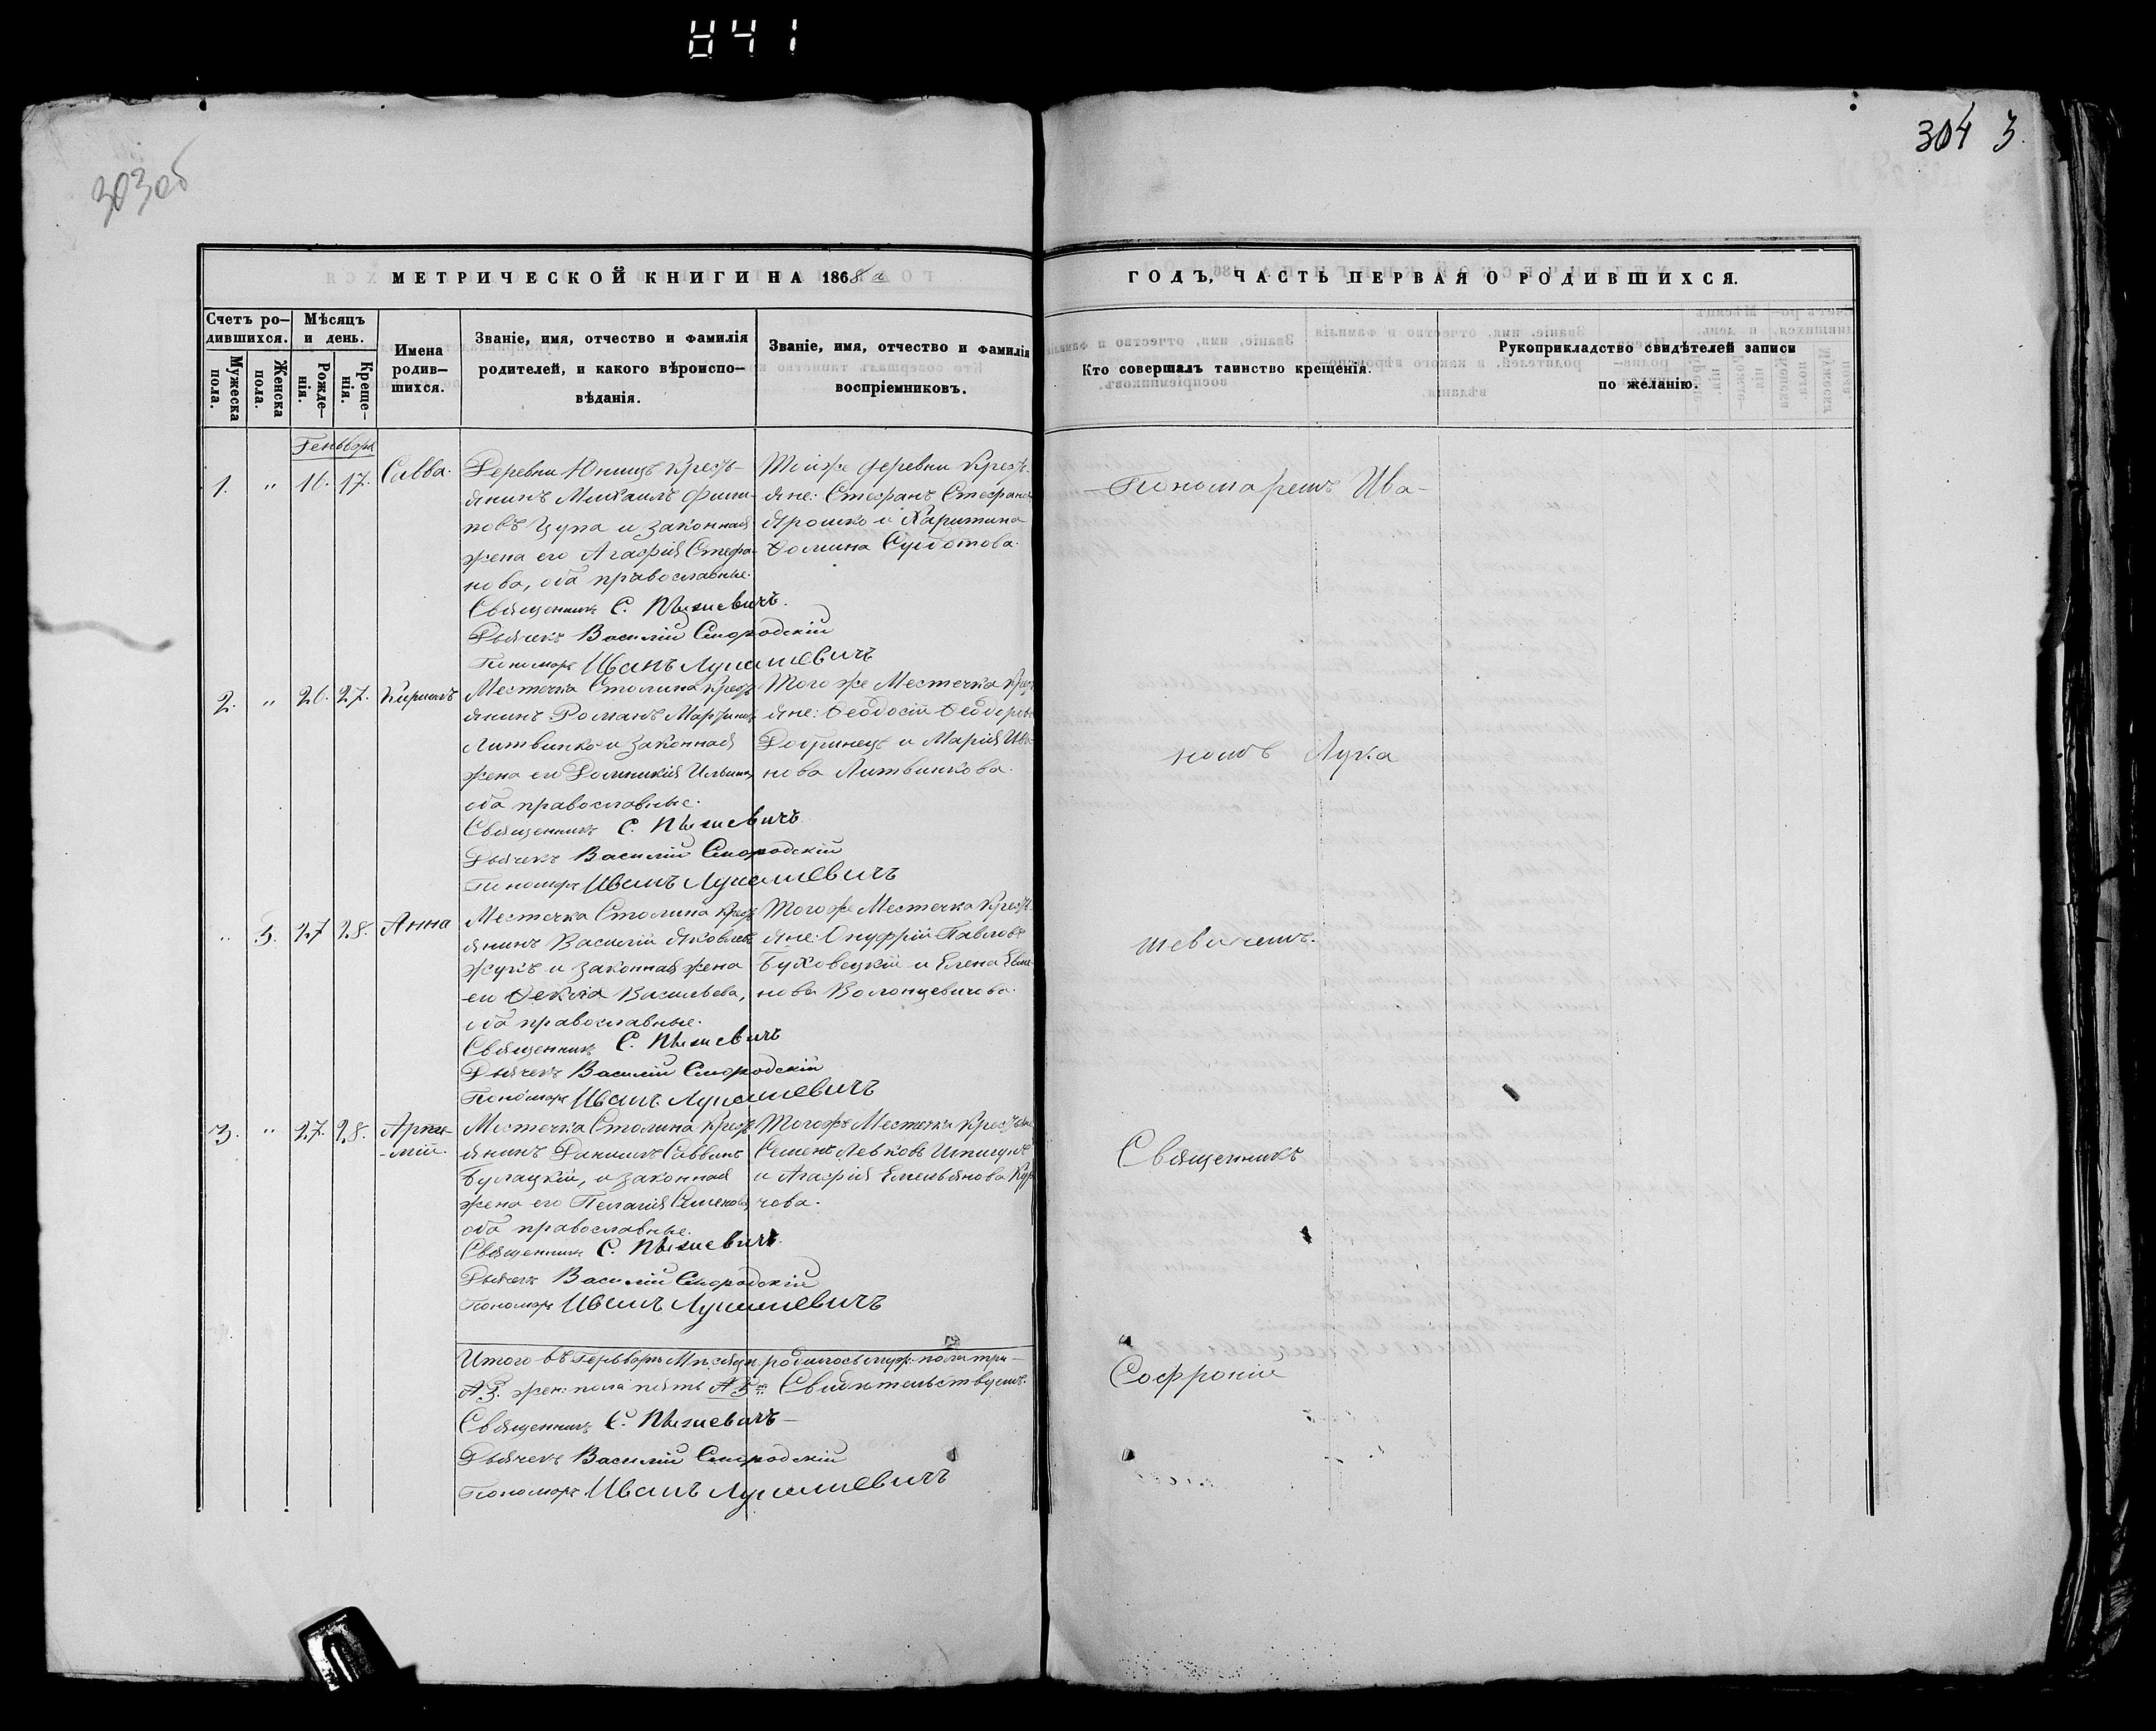 841
303об
304 3.
МЕТРИЧЕСКОЙ КНИГИ НА 1868й
ГОДЪ, ЧАСТЬ ПЕРВАЯ О РОДИВШИХСЯ.
Счетъ ро-
дившихся.
Мужеска пола.
Женска пола.
Мѣсяцъ
и день.
Рожде-
нія.
Креще-
нія.
Имена
родив-
шихся.
Званіе, имя, отчество и фамилія
родителей, и какого вѣроиспо-
вѣданія.
Званіе, имя, отчество и фамилія
воспріемниковъ.
Кто совершалъ таинство крещенія.
Рукоприкладство свидѣтелей записи
по желанію.
Геньварь
1. " 16. 17. Савва.
Деревни Юнищъ Кресть-
янинъ Михаилъ Фили-
повъ Цупа и законная
жена его Агафія Стефа-
нова, оба православные.
Священникъ С.
Дьячекъ Василій Смородскій
Пономарь Иванъ Лукашевичъ
Тойже деревни Кресть-
яне: Стефанъ Стефановъ
Ярошко и Харитина
Фомина Субботова.
2. " 26. 27. Кирилъ
Местечка Столина Кресть-
янинъ Романъ Мартиновъ
Литвинко и законная
жена его Домникія Ильина,
оба православные.
Священникъ С.
Дьячекъ Василій Смородскій
Пономарь Иванъ Лукашевичъ
Того же Местечка Крест
яне: Ѳеодосій Ѳеодоровъ
Добринецъ и Марія Ива-
нова Литвинкова.
" 5. 27 28. Анна
Местечка Столина Кресть
янинъ Василій Яковлевъ
Жукъ и законная жена
его Ѳекла Васильева,
оба православные.
Священникъ С.
Дьячекъ Василій Смородскій
Пономарь Иванъ Лукашевичъ
Того же Местечка Кресть-
яне: Онуфрій Павловъ
Буховецкій и Елена
нова Волонцевичова.
3. " 27. 28. Арте-
-мій.
Местечка Столина Кресть
янинъ Даніилъ Саввинъ
Булацкій, и законная
жена его Пелагія Семенова,
оба православные.
Священникъ С.
Дьячекъ Василій Смородскій
Пономарь Иванъ Лукашевичъ
Тогожъ Местечка Крестьяне
Семенъ Левковъ Шпигунъ
и Агафія Емельянова
чова.
Итого въ Геньварѣ Мѣсяцѣ родилось муж: пола три-
№3. жен: пола пять №5. Свидѣтельствуемъ.
Священникъ С.
Дьячекъ Василій Смородскій
Пономарь Иванъ Лукашевичъ
Пономаремъ Ива-
номъ Лука
шевичемъ.
Священникъ
Софроній